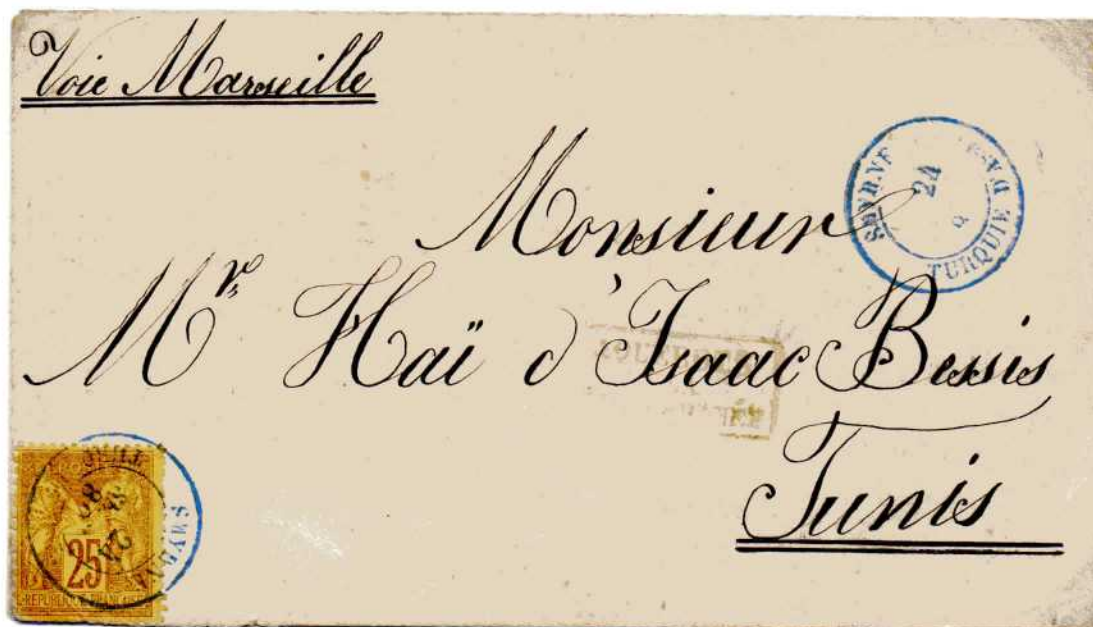 Voie Marseille
SMYRNE
24
TURQUIE D'ASIE
Monsieur
Mr. Haï d'Isaac Bessis
Tunis
25
REPUBLIQUE FRANÇAISE
SMYRNA